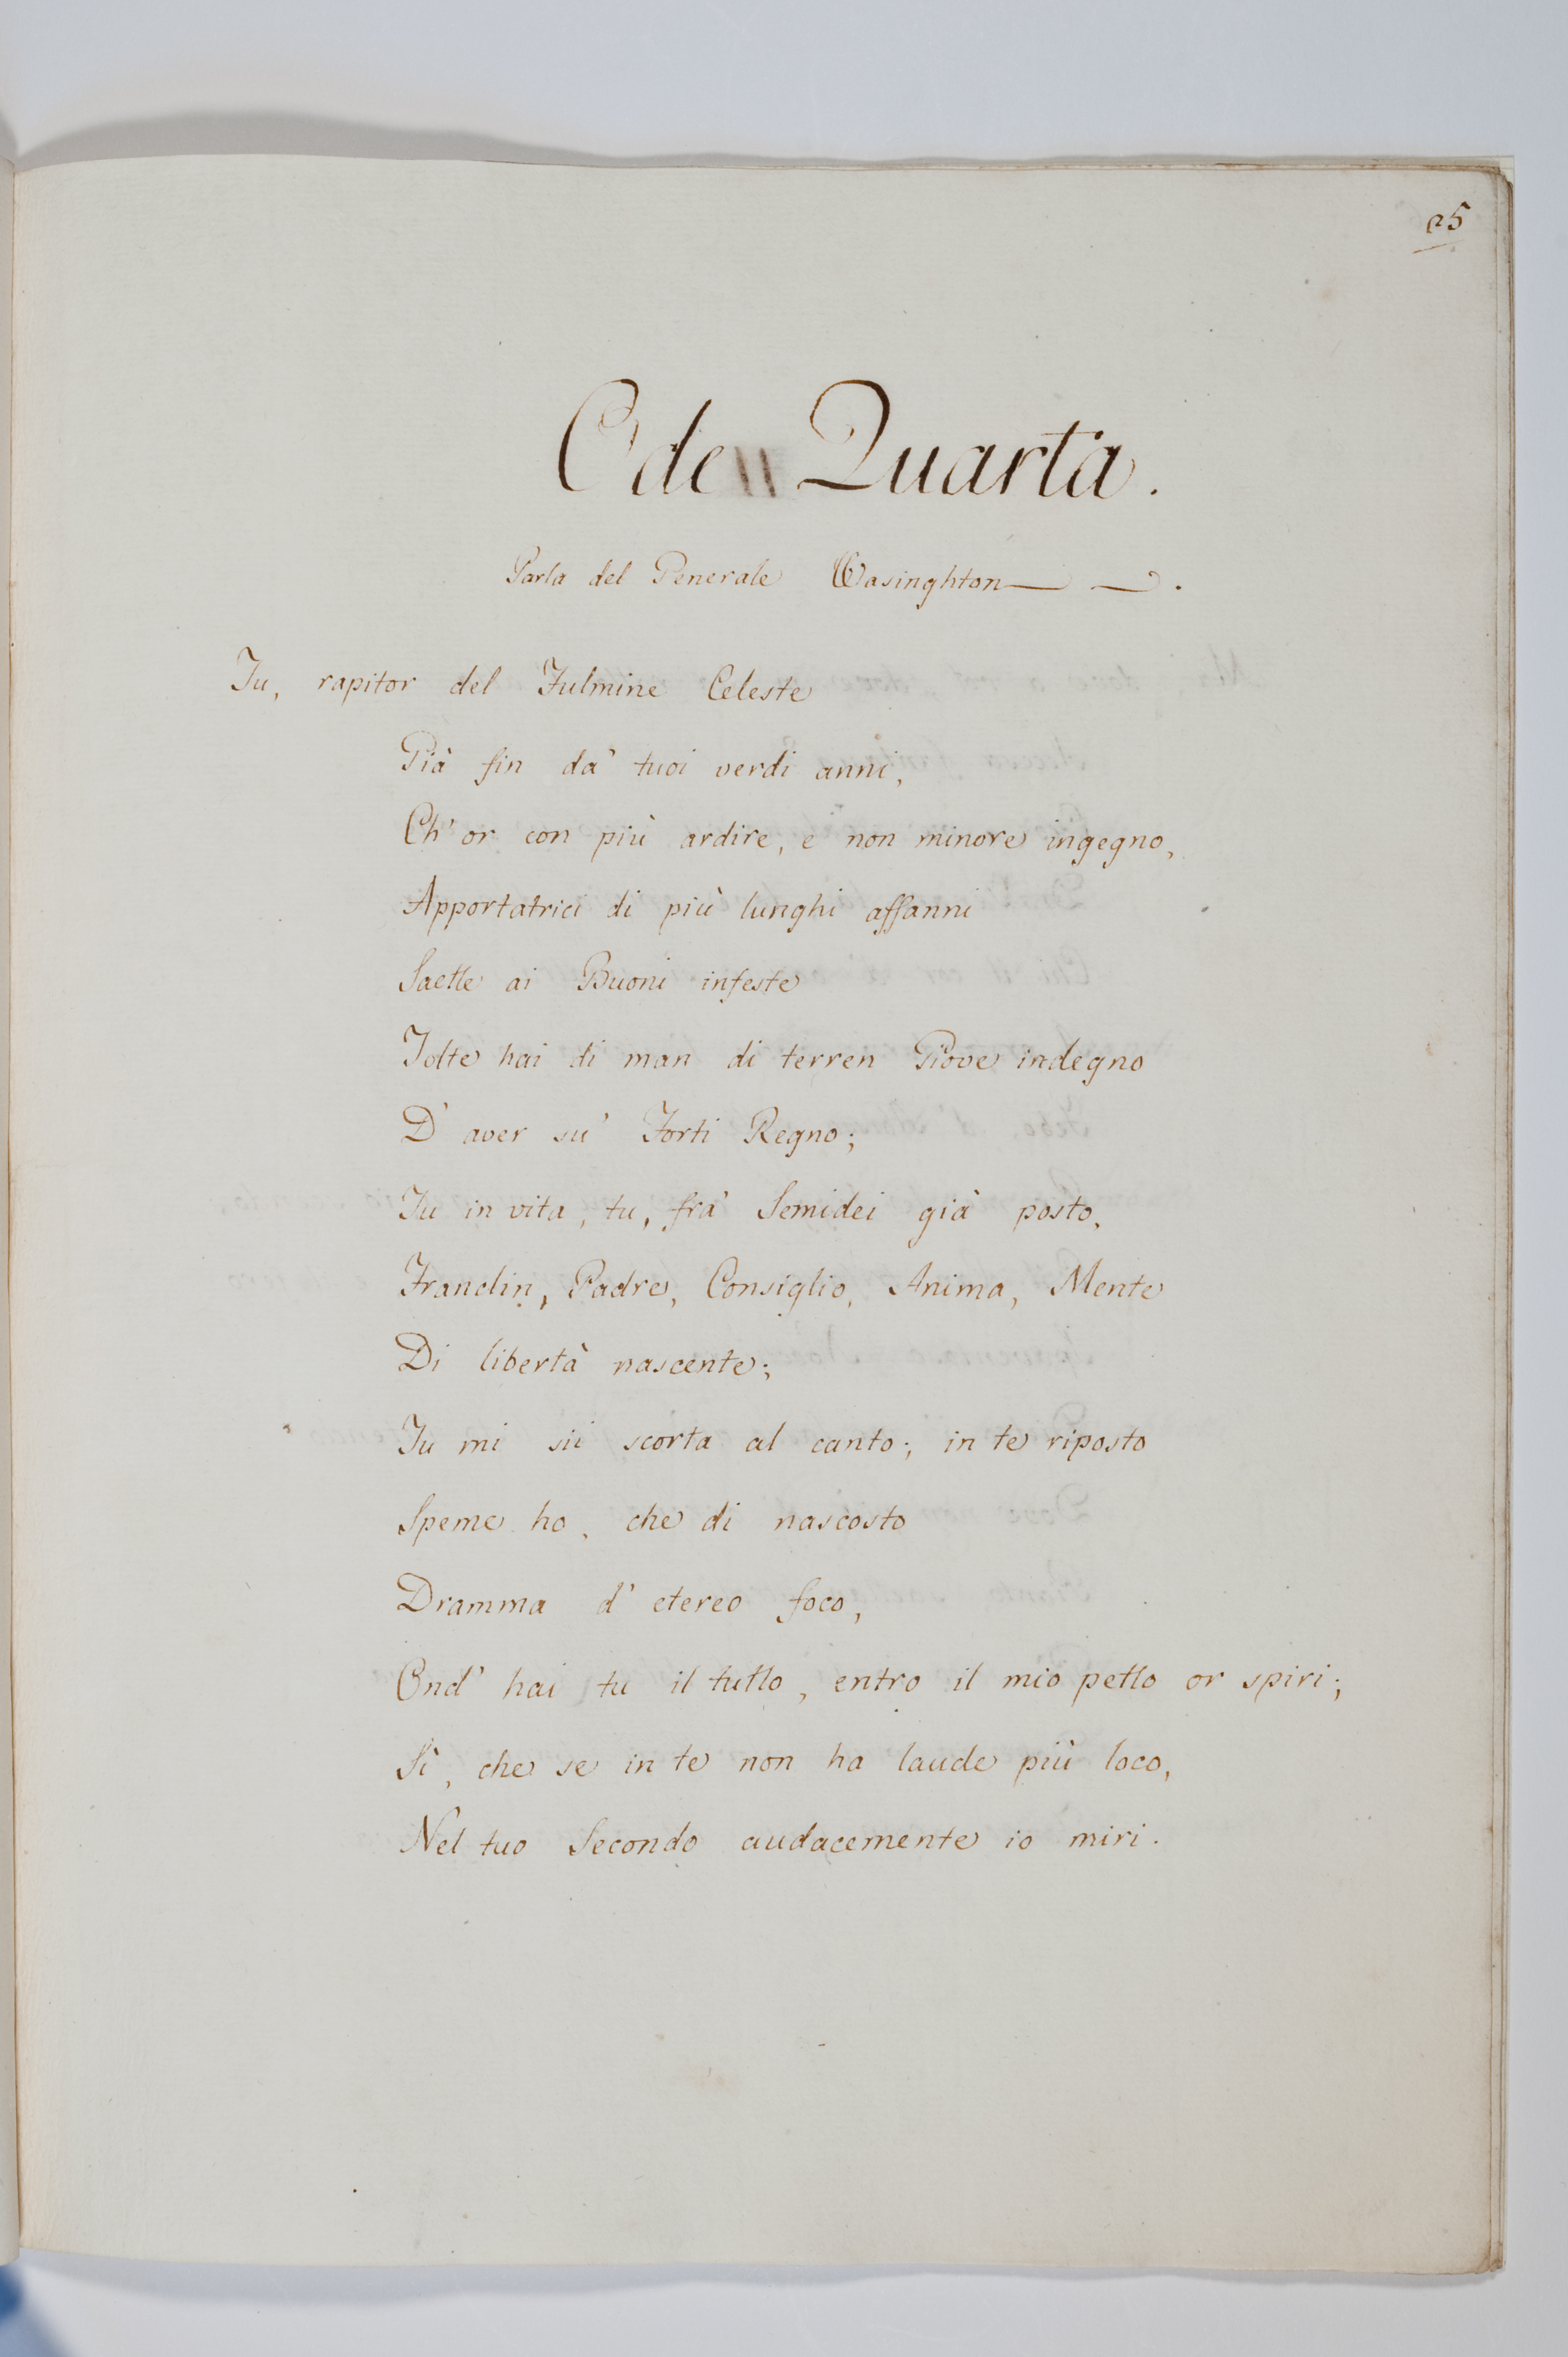 25
Ode Quarta.
Parla del Generale Wasinghton.
Tu, rapitor del Fulmine Celeste
Già fin da' tuoi verdi anni,
Ch' or con più ardire, e non minore ingegno,
Apportatrici di più lunghi affanni
Saette ai Buoni infeste
Tolte hai di man di terren Giove indegno
D' aver su' Forti Regno;
Tu in vita, tu, fra' Semidei già posto,
Franclin, Padre, Consiglio, Anima, Mente
Di libertà nascente;
Tu mi sii scorta al canto; in te riposto
Speme ho, che di nascosto
Dramma d' etereo foco,
Ond' hai tu il tutto, entro il mio petto or spiri;
Sì, che se in te non ha laude più loco,
Nel tuo Secondo audacemente io miri.